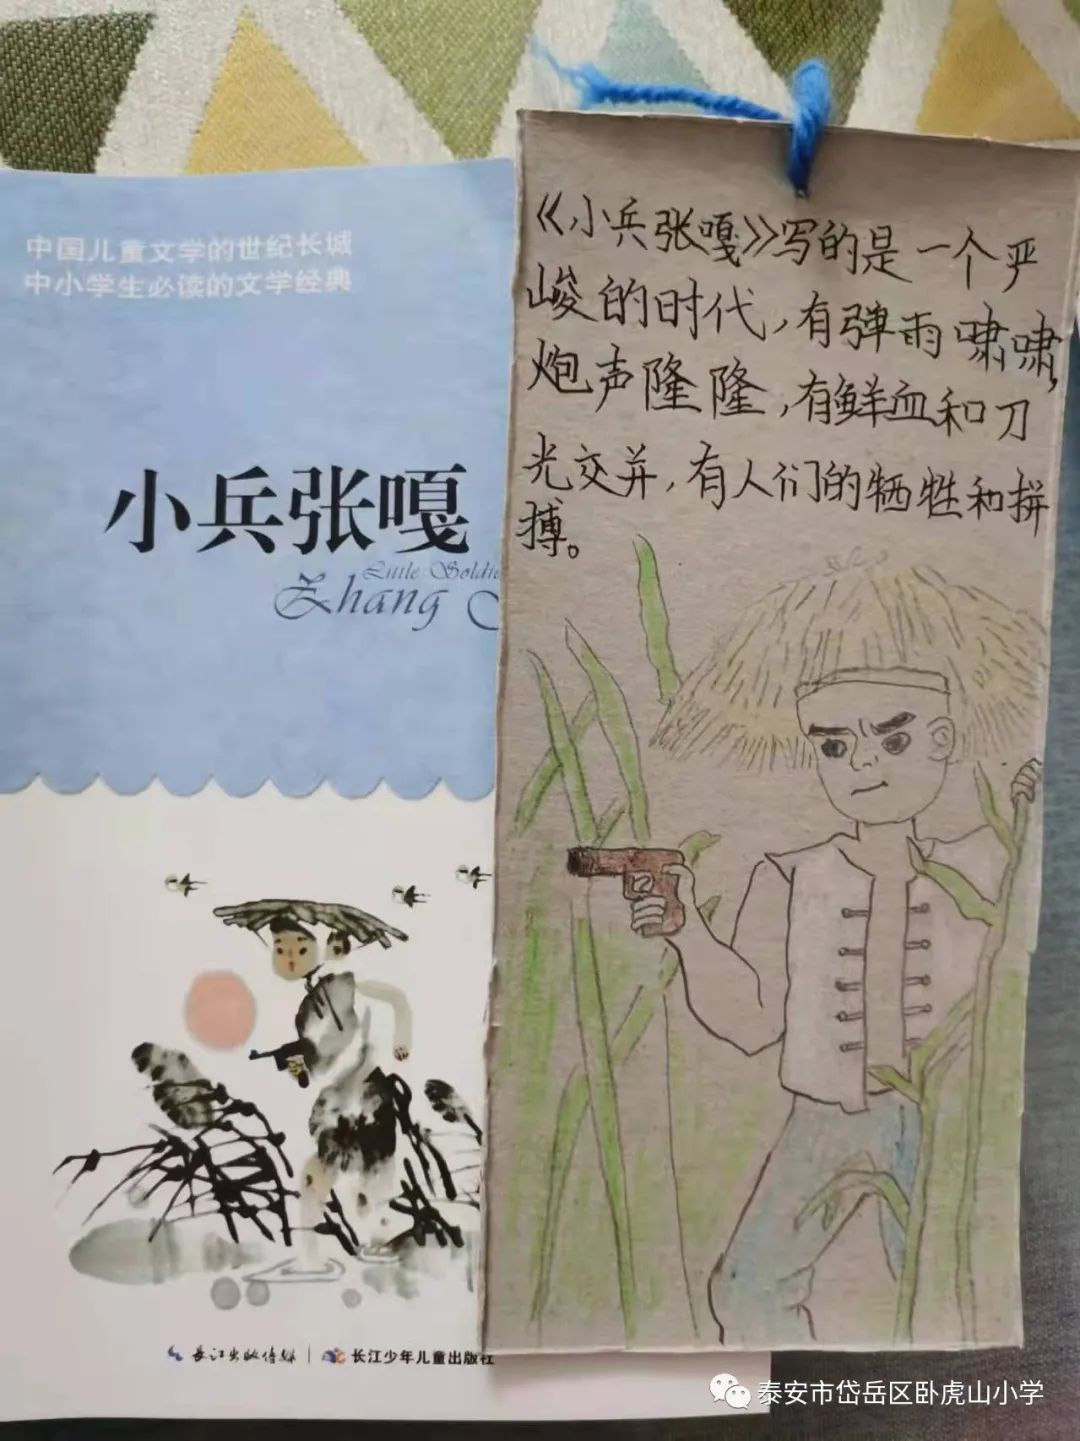 中国儿童文学的世纪长城
中小学生必读的文学经典
小兵张嘎
Little Soldie
Zhang
长江出版传媒 | 长江少年儿童出版社
《小兵张嘎》写的是一个严
峻的时代,有弹雨啸啸,
炮声隆隆,有鲜血和刀
光交并,有人们的牺牲和拼
搏。
泰安市岱岳区卧虎山小学